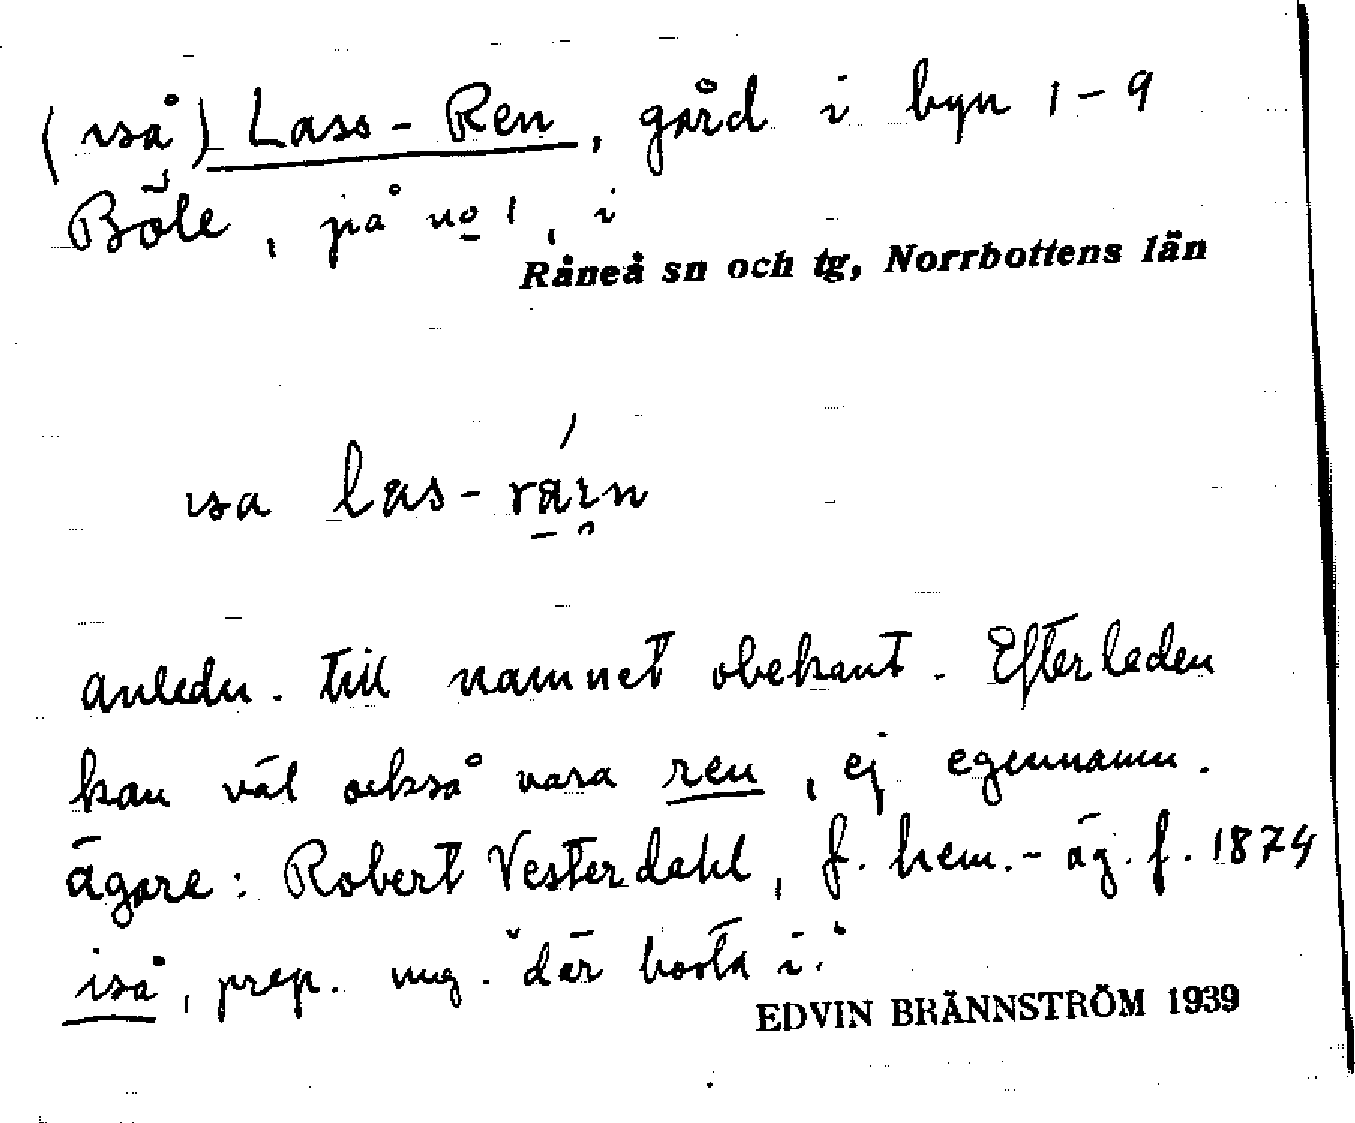 (iså) Lass-Ren, gård i byn 1-9
Böle, på no 1, i
Råneå sn och tg, Norrbottens län
isa las-
anledn. till namnet obekant. Efterleden
kan väl också vara ren, ej egennamn.
ägare: Robert Vesterdahl, f. hem.-äg. f. 1874
iså, prep. ung. "där borta i."
EDVIN BRÄNNSTRÖM 1939